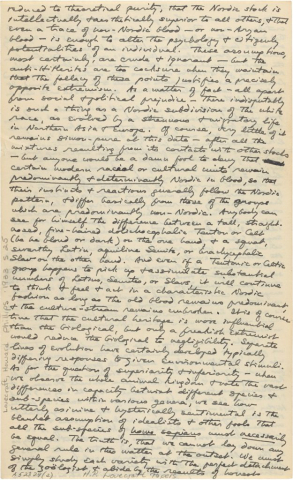 reduced to theoretical purity, that the Nordic stock is
intellectually & aesthetically superior to all others, & that
even a trace of non-Nordic blood — or non-Aryan
blood — is enough to alter the psychology & citizenly
potentialities of an individual. These assumptions,
most certainly, are crude & ignorant — but the
anti-Hitlerites are too cocksure when they maintain
that the fallacy of these points justifies a precisely
opposite extremism. As a matter of fact — all apart
from social & political prejudice — there indubitably
is such a thing as a Nordic subdivision of the white
race, as evolved by a strenuous & migratory life
in Northern Asia & Europe. Of course, very little of it
remains simon-pure at this date — after all the
mixtures resulting from its contacts with other stocks
— but anyone would be a damn fool to deny that
certain modern racial or cultural units remain
predominantly & determinantly Nordic in blood, so that
their instincts & reactions generally follow the Nordic
pattern, & differ basically from those of the groups
which are predominantly non-Nordic. Anybody can
see for himself the difference between a tall, straight-
nosed, fine-haired dolichocephalic Teuton or Celt
(be he blond or dark) on the one hand, & a squat,
swarthy Latin, aquiline Semite, or brachycephalic
Slav on the other hand. And even if a Teutonic or Celtic
group happens to pick up & assimilate substantial
numbers of Latins, Semites, or Slavs, it will continue
to think & feel & act in a characteristic Nordic
fashion as long as the old blood remains predominant,
& the culture-stream remains unbroken. It is of course
true that the cultural heritage is more influential
than the biological, but only a freakish extremist
would reduce the biological to negligibility. Separate
lines of evolution have certainly developed typically
differing responses to given environmental stimuli.
As for the question of superiority & inferiority — when
we observe the whole animal kingdom & note the vast
differences in capacity betwixt different species &
sub-species within various genera, we see how
utterly asinine & hysterically sentimental is the
blanket assumption of idealists & other fools that
all the sub-species of homo sapiens must necessarily
be equal. The truth is, that we cannot lay down any
general rule in this matter at the outset. We must
simply study each variety with the perfect detachment
of the zoölogist & abide by the results of honest